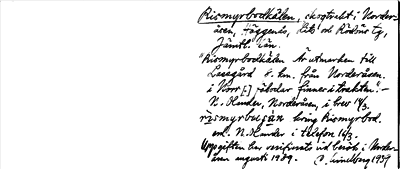 Rismyrbodkölen, skogtrakt i Norder-
åsen, Häggenås, Lits och Rödöns tg,
Jämtl. län.
"Rismyrbodkölen är utmarken till
Lassgård 8. km. från Norderåsen.
i Norr [.] fäbodar finnes i trakten." –
N. Hander, Norderåsen, i brev 14/3.
kring Rismyrbod.
enl. N. Hander i telefon 16/3.
Uppgiften har verifierats vid besök i Norder-
åsen augusti 1939. Lindberg 1939